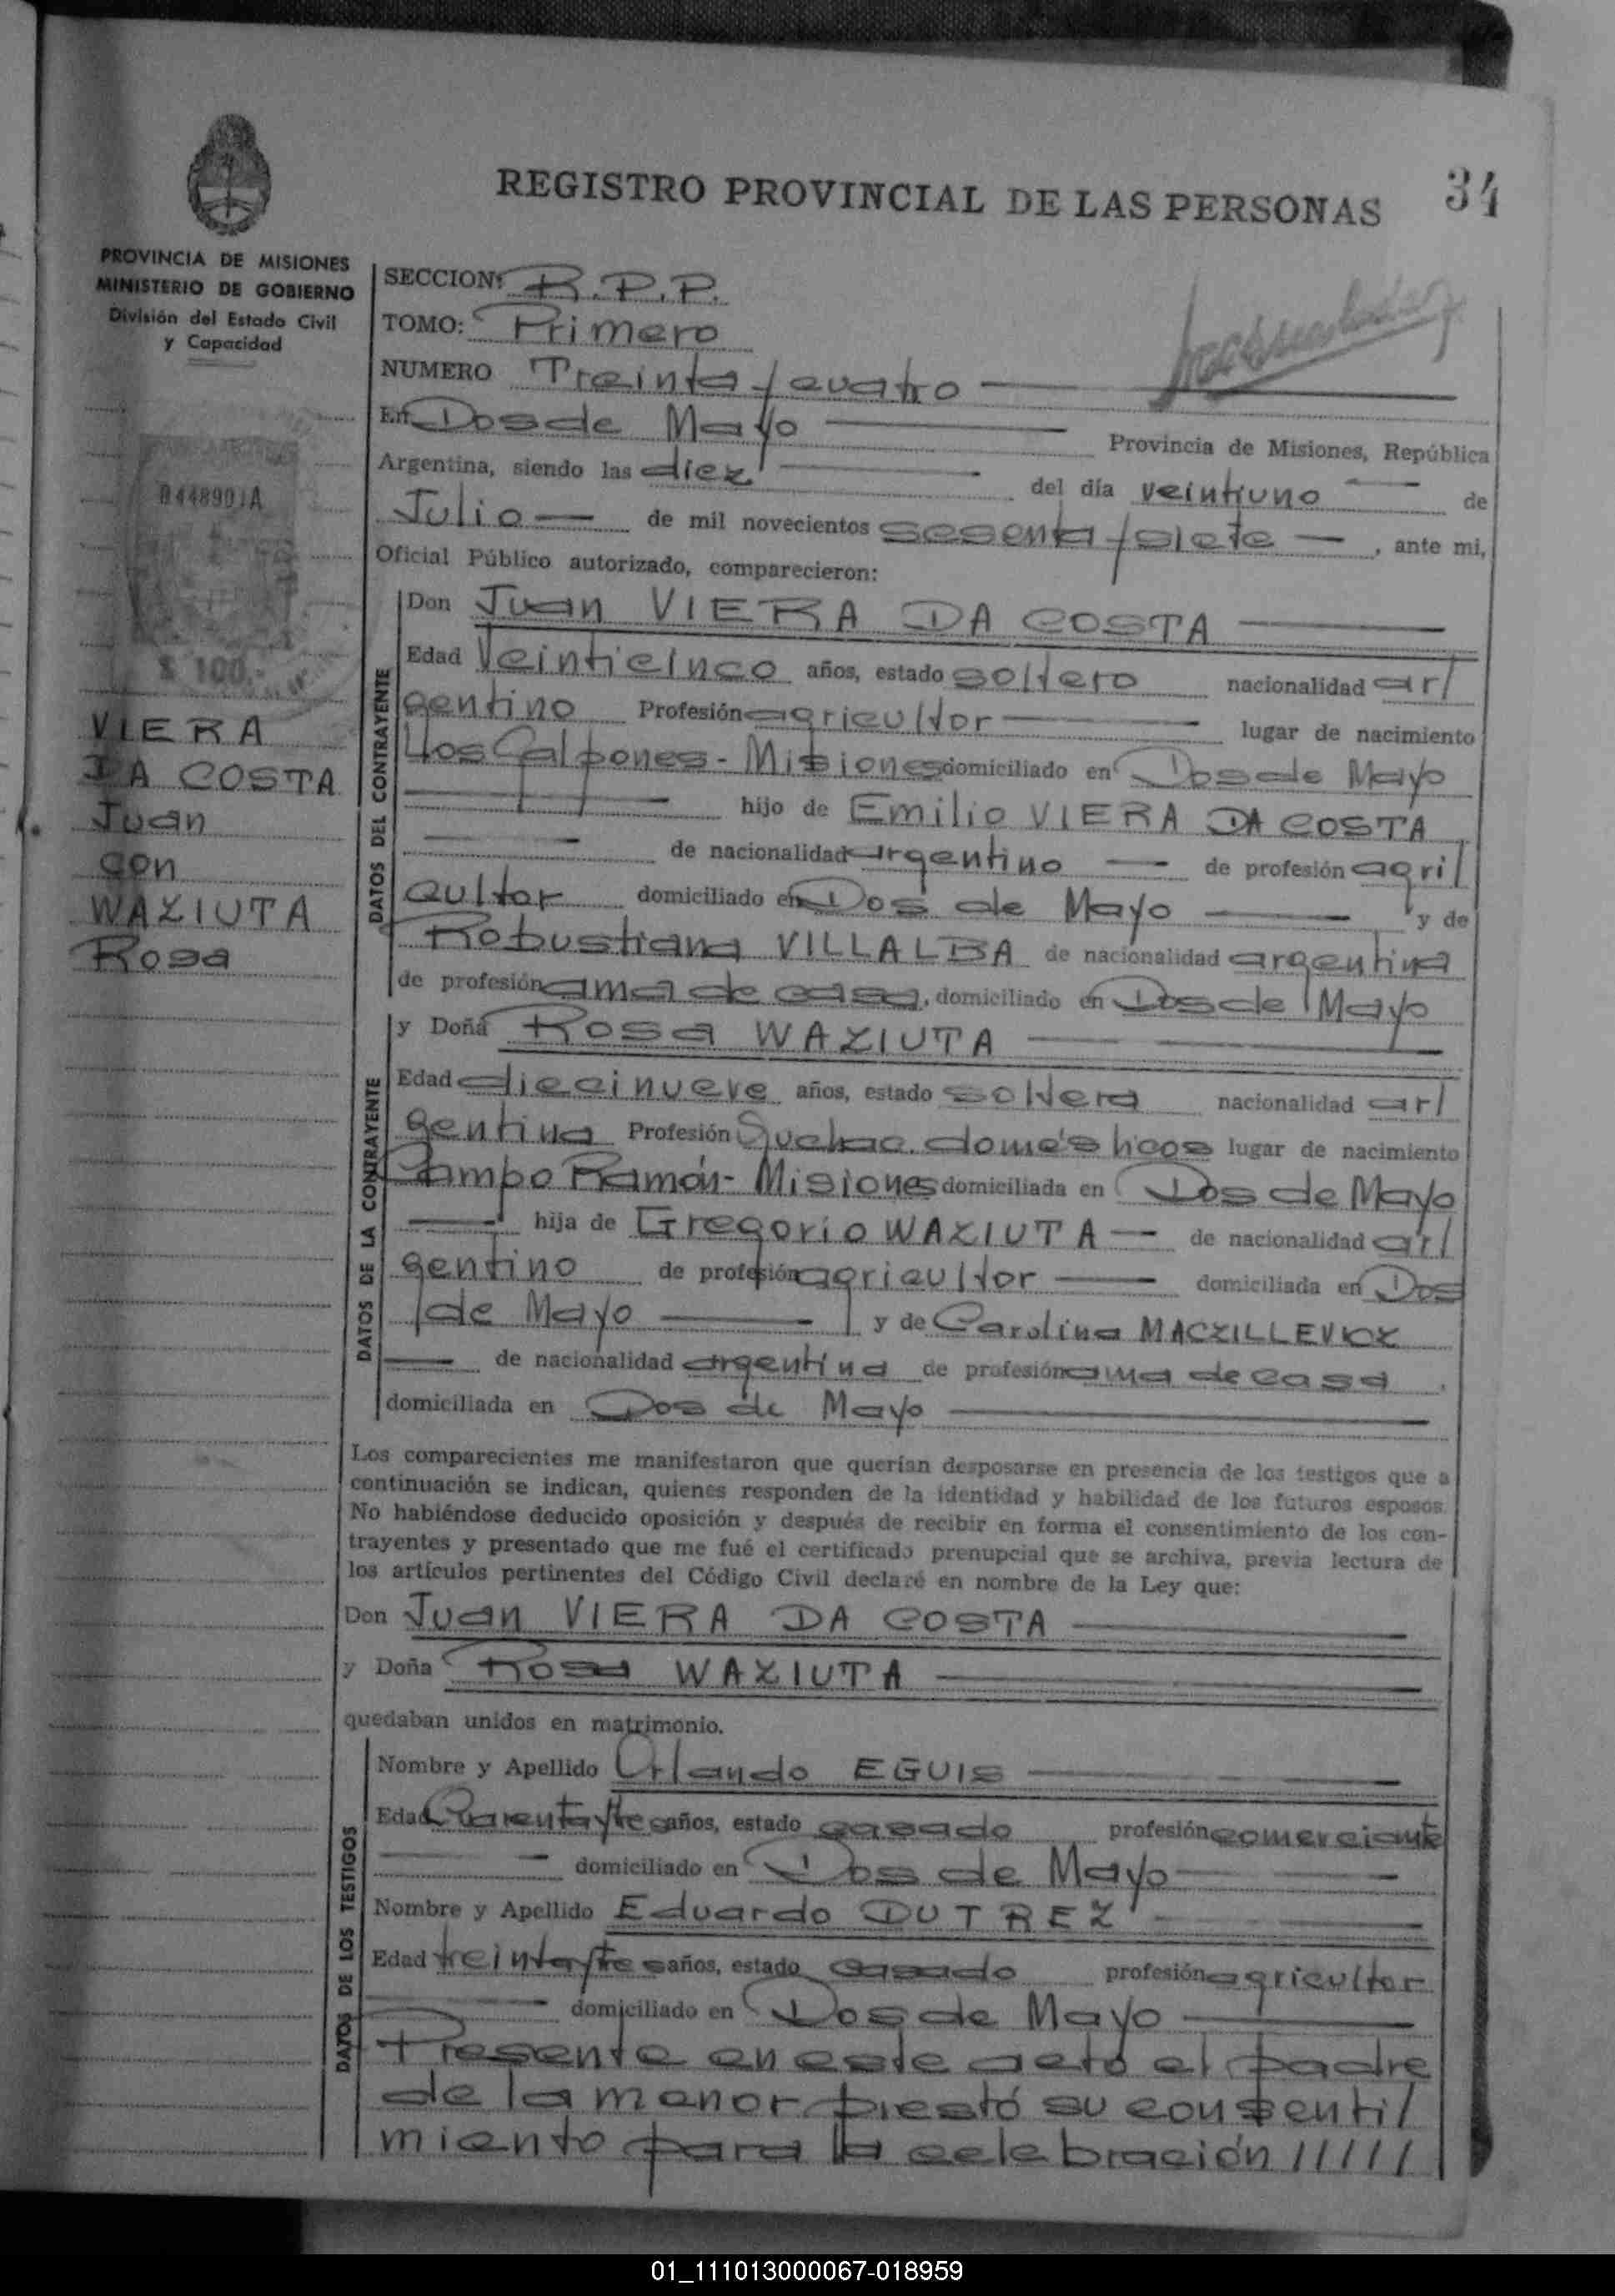 REGISTRO PROVINCIAL DE LAS PERSONAS 34
PROVINCIA DE MISIONES
MINISTERIO DE GOBIERNO
División del Estado Civil
y Capacidad
0448901A
$ 100.-
VIERA
DA COSTA
Juan
con
WAZIUTA
Rosa
SECCION: R.P.P.
TOMO: Primero
NUMERO Treinta y cuatro
En Dos de Mayo Provincia de Misiones, República
Argentina, siendo las diez del día veintiuno de
Julio de mil novecientos sesenta y siete, ante mi,
Oficial Público autorizado, comparecieron:
DATOS DEL CONTRAYENTE
Don Juan VIERA DA COSTA
Edad Veinticinco años, estado soltero nacionalidad ar/
gentino Profesión agricultor lugar de nacimiento
Los Galpones - Misiones domiciliado en Dos de Mayo
hijo de Emilio VIERA DA COSTA
de nacionalidad argentino de profesión agri/
cultor domiciliado en Dos de Mayo y de
Robustiana VILLALBA de nacionalidad argentina
de profesión ama de casa, domiciliado en Dos de Mayo
DATOS DE LA CONTRAYENTE
y Doña Rosa WAZIUTA
Edad diecinueve años, estado soltera nacionalidad ar/
gentina Profesión Quehac. domésticos lugar de nacimiento
Campo Ramón - Misiones domiciliada en Dos de Mayo
hija de Gregorio WAZIUTA de nacionalidad ar/
gentino de profesión agricultor domiciliada en Dos
de Mayo y de Carolina
de nacionalidad argentina de profesión ama de casa
domiciliada en Dos de Mayo
Los comparecientes me manifestaron que querían desposarse en presencia de los testigos que a
continuación se indican, quienes responden de la identidad y habilidad de los futuros esposos.
No habiéndose deducido oposición y después de recibir en forma el consentimiento de los con-
trayentes y presentado que me fué el certificado prenupcial que se archiva, previa lectura de
los artículos pertinentes del Código Civil declaré en nombre de la Ley que:
Don Juan VIERA DA COSTA
y Doña Rosa WAZIUTA
quedaban unidos en matrimonio.
DATOS DE LOS TESTIGOS
Nombre y Apellido Orlando EGUIS
Edad Cuarenta y tres años, estado casado profesión comerciante
domiciliado en Dos de Mayo
Nombre y Apellido Eduardo DUTREZ
Edad treinta y tres años, estado casado profesión agricultor
domiciliado en Dos de Mayo
Presente en este acto el padre
de la menor prestó su consenti/
miento para la celebración /////
01_111013000067-018959